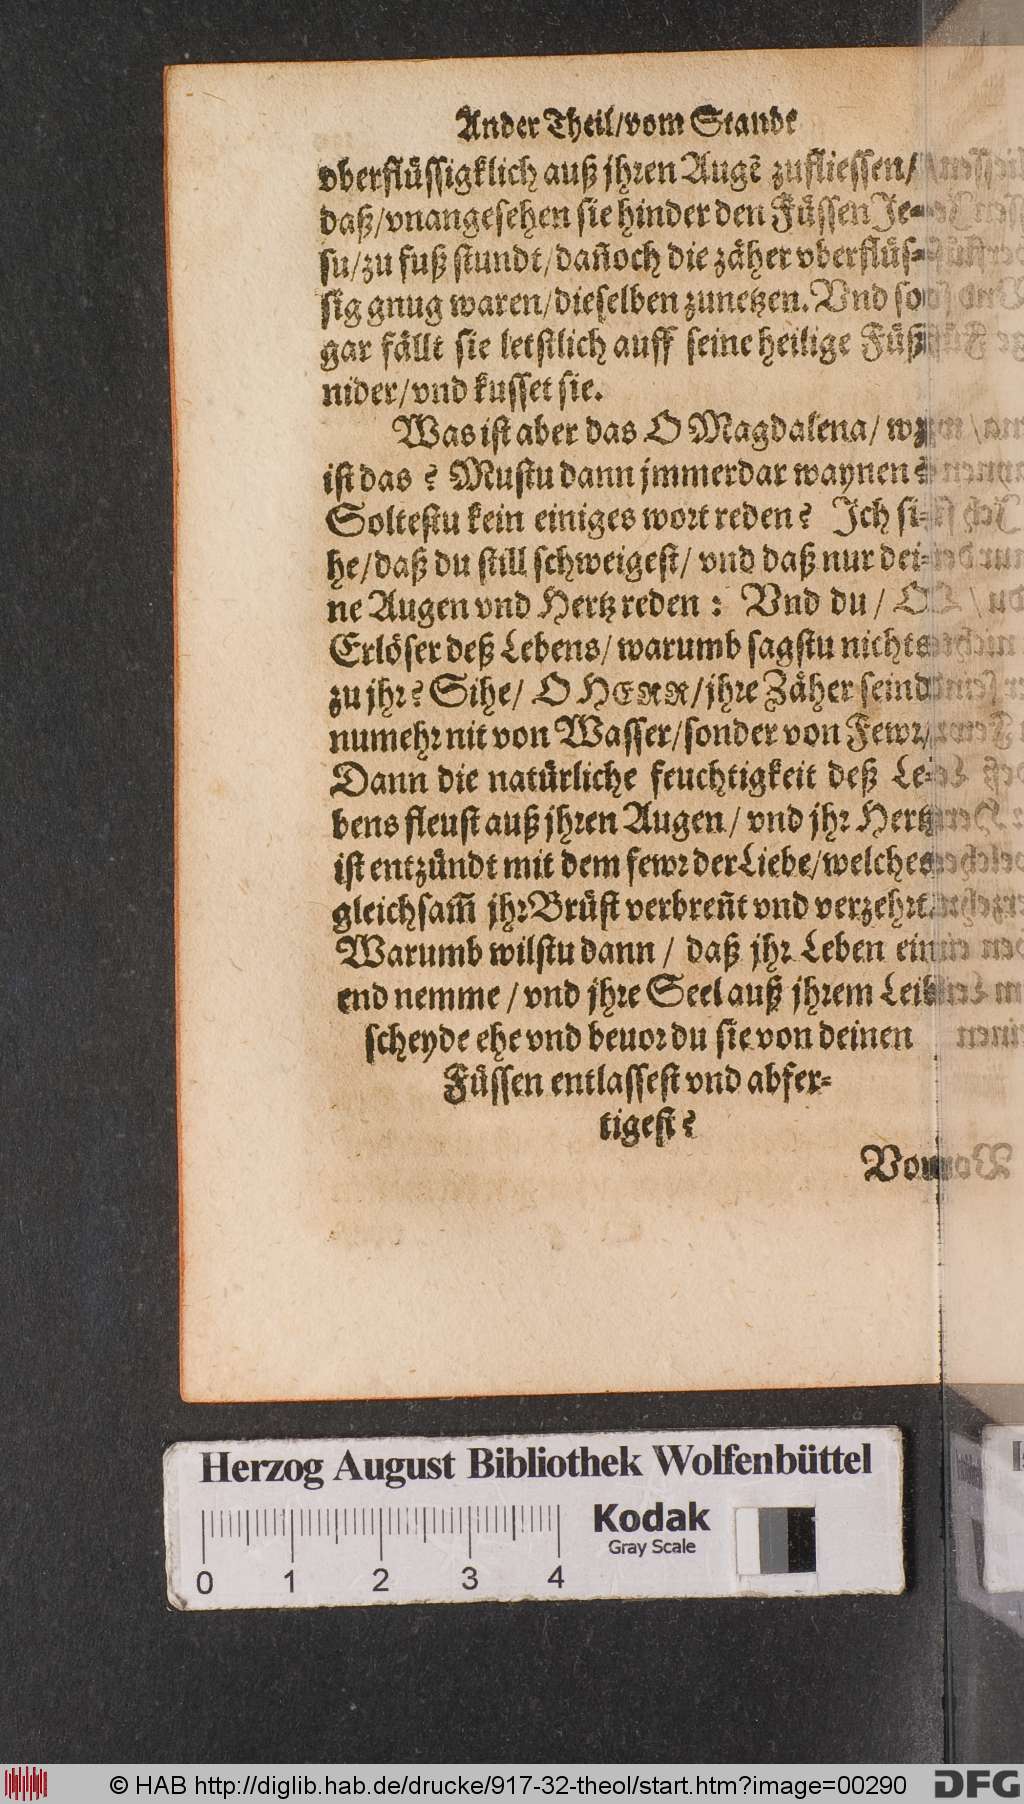 Ander Theil/vom Stande
vberflüssigklich auß jhren Augẽ zufliessen/
daß/vnangesehen sie hinder den Füssen Je-
su/zu fuß stundt/dañoch die zäher vberflüs-
sig gnug waren/dieselben zunetzen. Vnd so
gar fällt sie letstlich auff seine heilige Füß
nider/vnd kusset sie.
Was ist aber das O Magdalena/ wz
ist das? Mustu dann jmmerdar waynen?
Soltestu kein einiges wort reden? Ich si-
he/daß du still schweigest/ vnd daß nur dei-
ne Augen vnd Hertz reden: Vnd du/ O
Erlöser deß Lebens/ warumb sagstu nichts
zu jhr? Sihe/ O HERR/jhre Zäher seind
numehr nit von Wasser/sonder von Fewr/
Dann die natürliche feuchtigkeit deß Le-
bens fleust auß jhren Augen/ vnd jhr Hertz
ist entzündt mit dem fewr der Liebe/welches
gleichsam̃ jhr Brüst verbreñt vnd verzehrt.
Warumb wilstu dann/ daß jhr Leben ein
end nemme/ vnd jhre Seel auß jhrem Leib
scheyde ehe vnd beuor du sie von deinen
Füssen entlassest vnd abfer-
tigest?
Von
Herzog August Bibliothek Wolfenbüttel
Kodak
Gray Scale
0 1 2 3 4
© HAB http://diglib.hab.de/drucke/917-32-theol/start.htm?image=00290
DFG